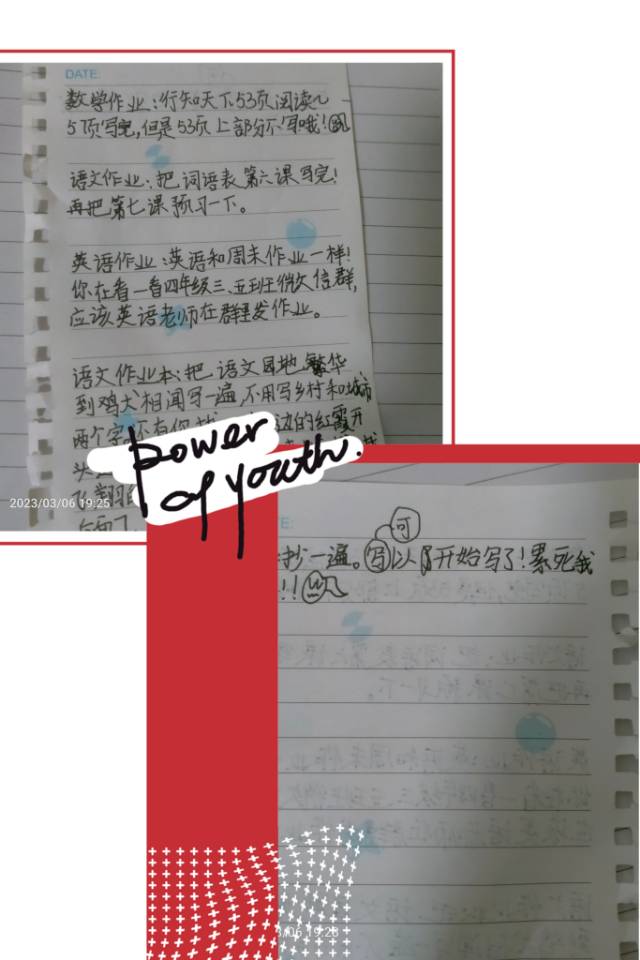 DATE:
数学作业:行知天下53页阅读~
5页写完,但是53页上部分不写哦!
语文作业:把词语表第六课写完!
再把第七课预习一下。
英语作业:英语和周末作业一样!
你在看一看四年级三、五班王微欠信群,
应该英语老师在群里发作业。
语文作业本:把语文园地 繁华
到鸡犬相闻写一遍,不用写乡村和城市
两个字,还有你 边的红霞开
头
飞翔的
power
of youth.
2023/03/06 19:25
E:
抄一遍。可以开始写了!累死我
!!
3/06 19:26